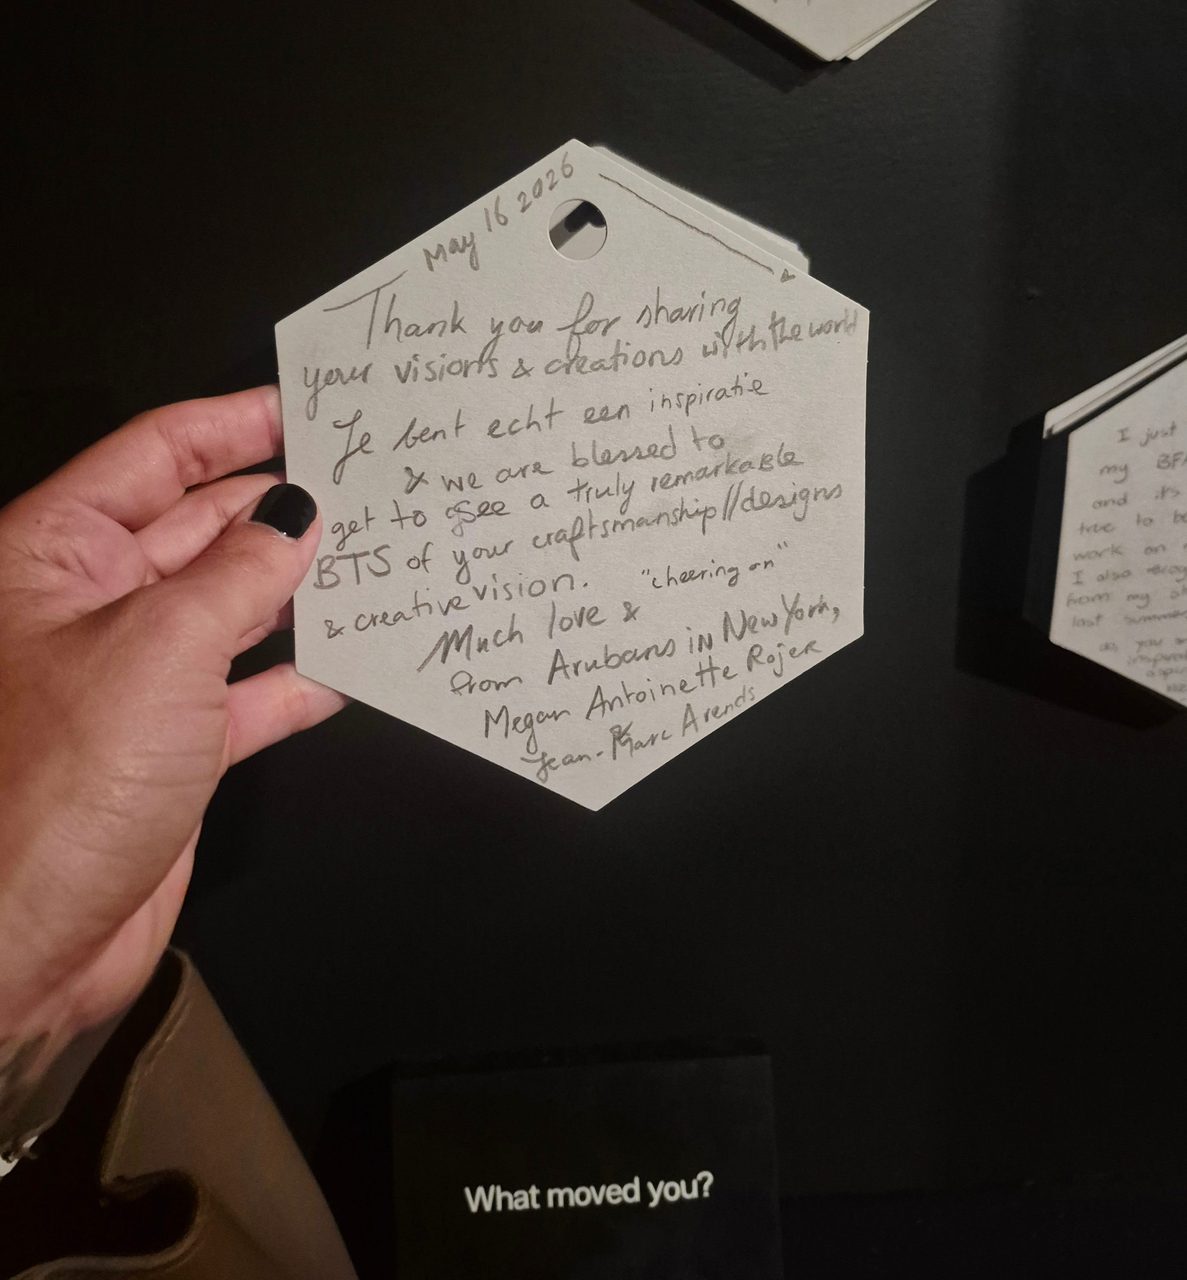 May 16 2026
Thank you for sharing
your visions & creations with the world
Je bent echt een inspiratie
& we are blessed to
get to see a truly remarkable
BTS of your craftsmanship//designs
& creative vision. "cheering on"
Much love &
from Arubans in New York,
Megan Antoinette Rojer
& Jean-Marc Arends
I just
my BFA
and it's
true to be
work on
I also
from my
last summer
do you
What moved you?